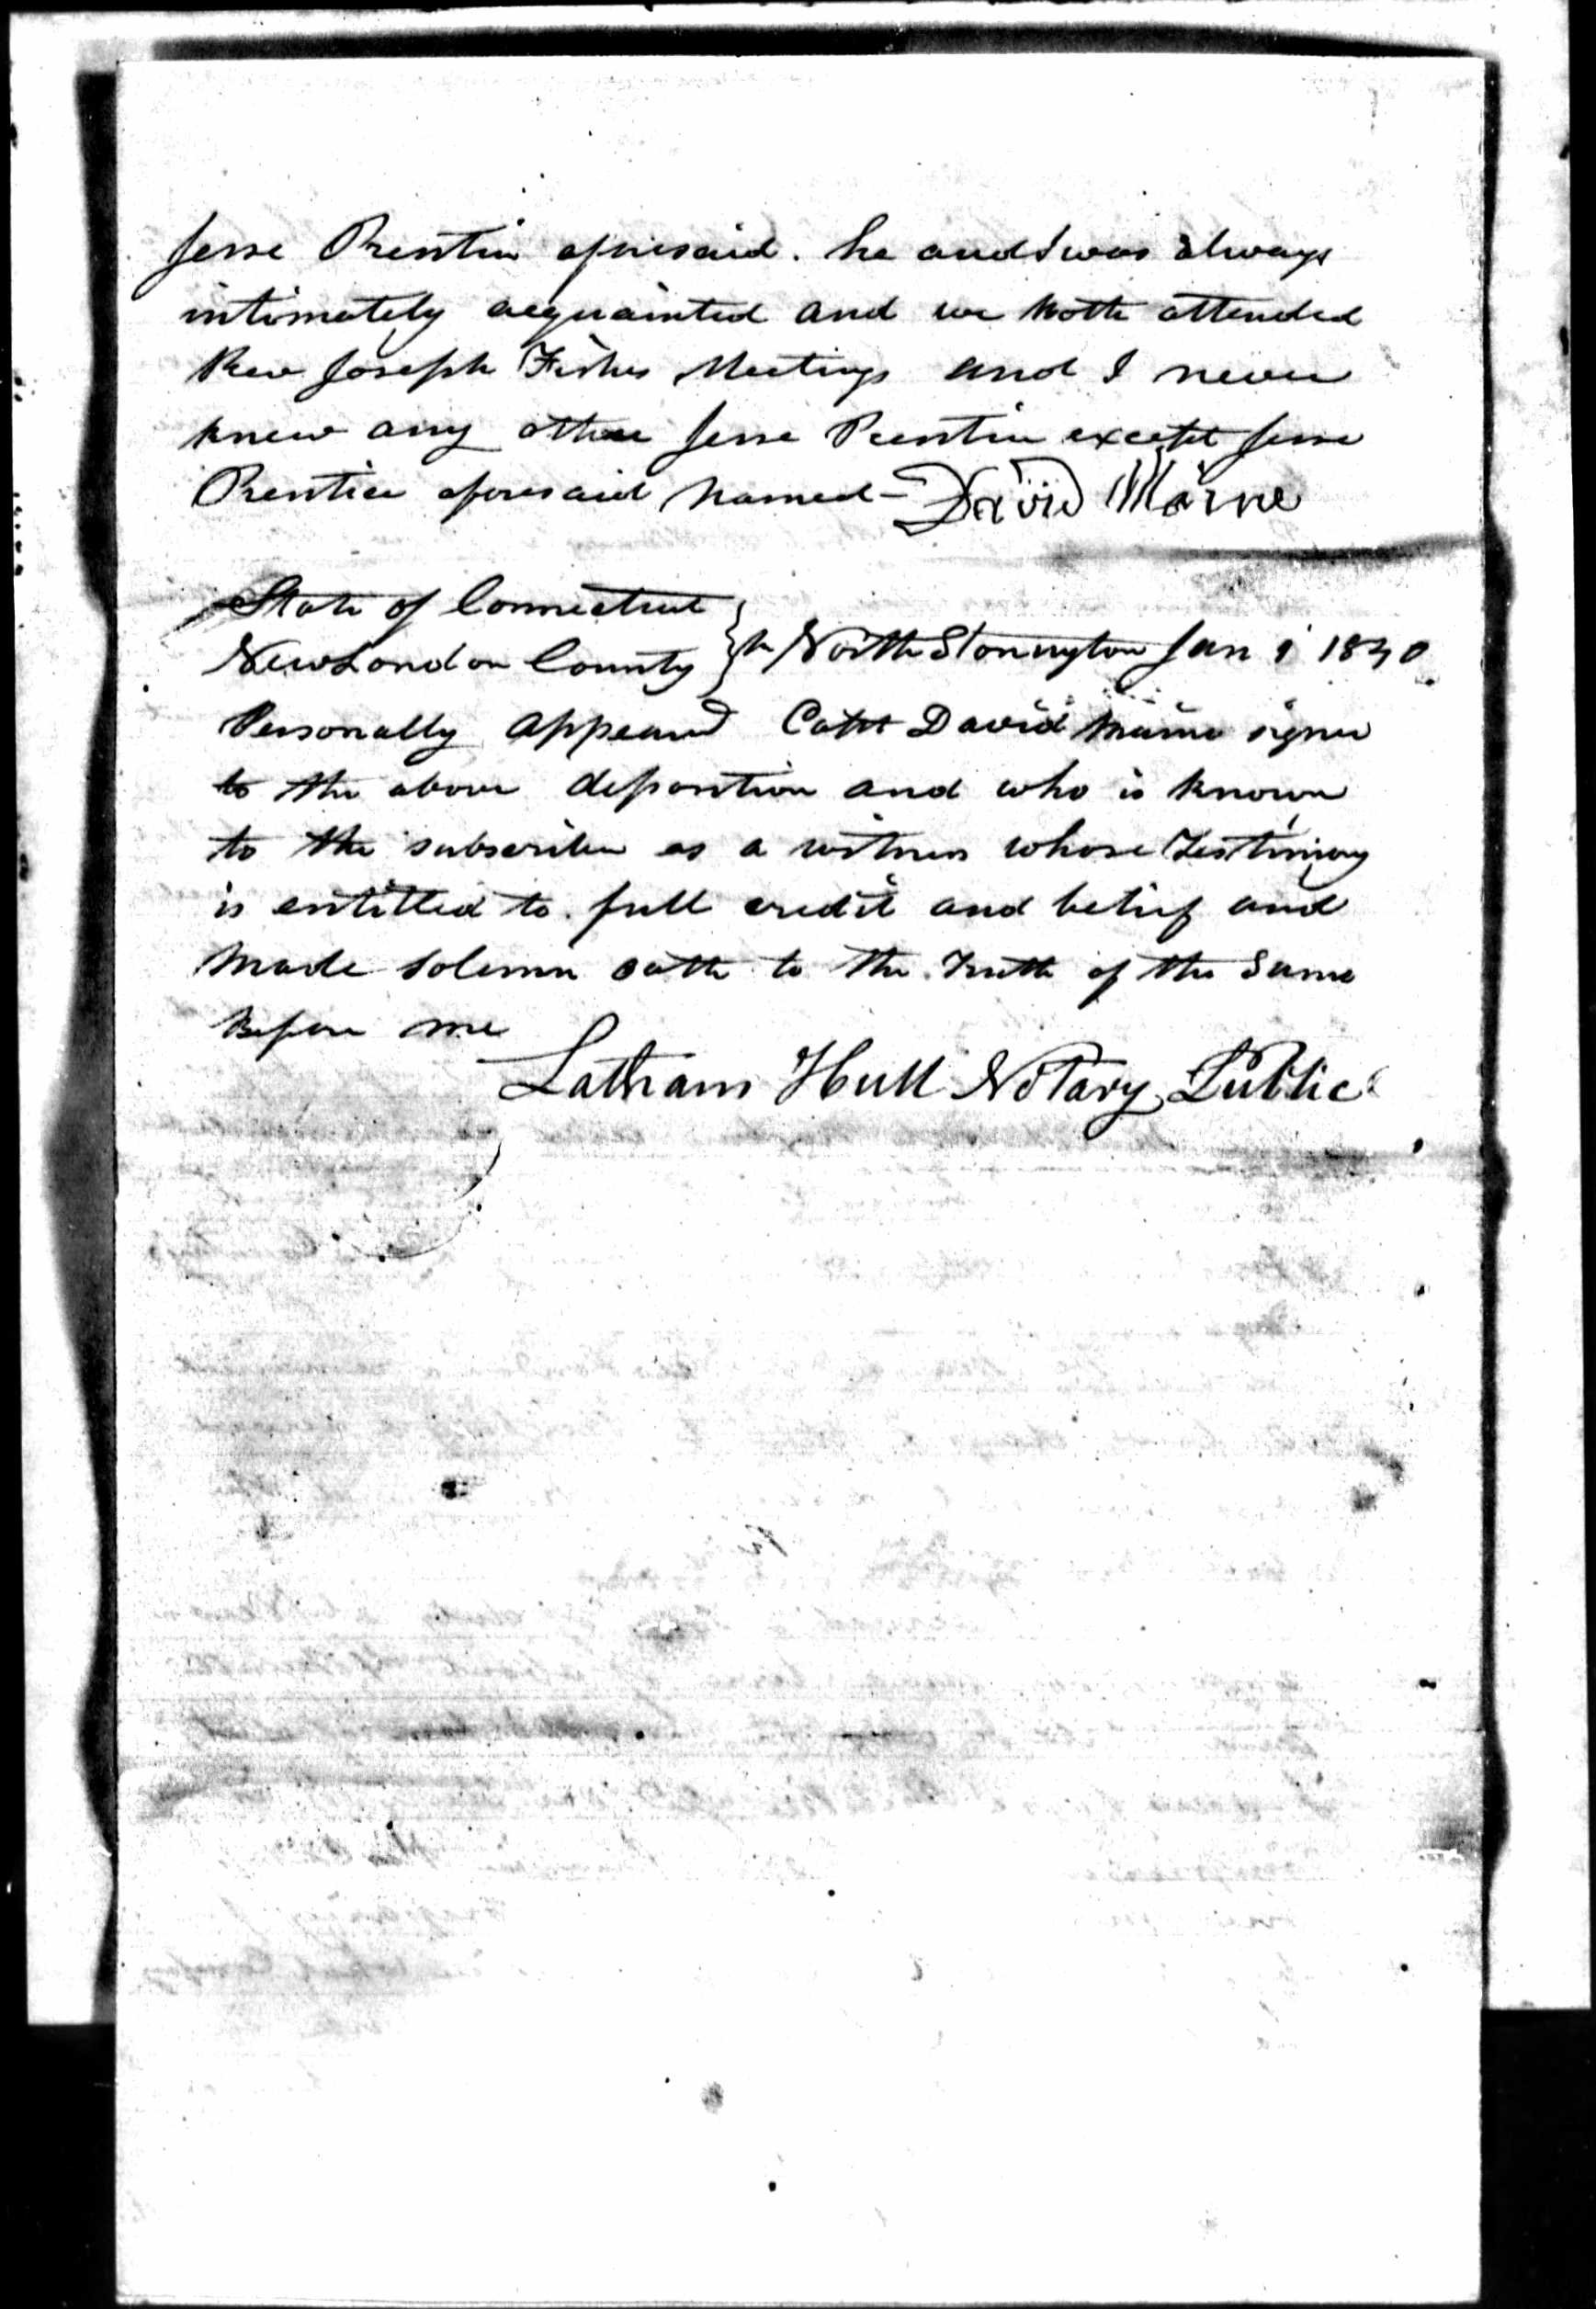 Jesse Prentice aforesaid. he and I was always
intimately acquainted and we both attended
Rev Joseph Fishes Meetings and I never
knew any other Jesse Prentice except Jesse
Prentice aforesaid Named - David Maine
State of Connecticut
New London County } ss North Stonington Jan 1 1840
Personally appeared Capt David Maine signer
to the above deposition and who is known
to the subscriber as a witness whose Testimony
is entitled to full credit and belief and
Made Solemn oath to the Truth of the Same
Before me
Latham Hull Notary Public